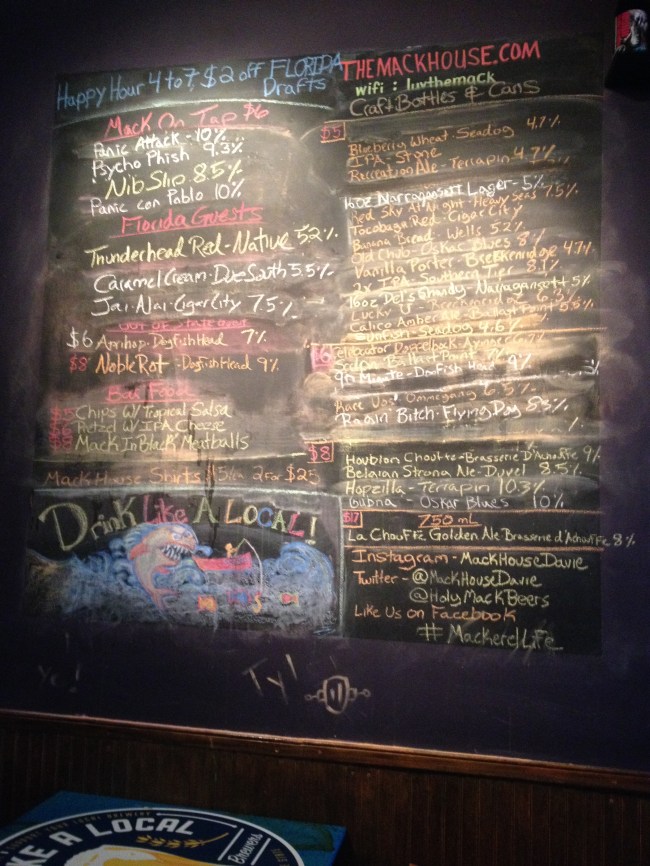 Happy Hour 4 to 7, $2 off FLORIDA Drafts
Mack On Tap $6
Panic Attack - 10%
Psycho Phish 9.3%
Nib Slip 8.5%
Panic con Pablo 10%
Florida Guests
Thunderhead Red - Native 5.2%
Caramel Cream - Due South 5.5%
Jai-Alai - Cigar City 7.5%
$6 Aprihop - Dogfish Head 7%
$8 Noble Rot - Dogfish Head 9%
Bar Food
$5 Chips W/ Tropical Salsa
Pretzel W/ IPA Cheese
Mack In Black Meatballs
Mack House Shirts 2 For $25
Drink Like A LOCAL!
THEMACKHOUSE.COM
wifi : luvthemack
Craft Bottles & Cans
$5
Blueberry Wheat - Seadog 4.7%
IPA - Stone
Recreation Ale - Terrapin 4.7%
16oz Narragansett Lager - 5%
Red Sky At Night - Heavy Seas 7.5%
Tocobaga Red - Cigar City
Banana Bread - Wells 5.2%
Old Chub - Oskar Blues 8%
Vanilla Porter - Breckenridge 4.7%
2x IPA - Southern Tier 8.1%
16oz Del's Shandy - Narragansett 5%
Lucky U - Breckenridge
Calico Amber Ale - Ballast Point 5.5%
Seadog
$6
Sculpin - Ballast Point
90 Minute - Dogfish Head 9%
Rare Vos - Ommegang 6.5%
Ragin' Bitch - Flying Dog 8.3%
$8
Houblon Chouffe - Brasserie D'Achouffe 9%
Belgian Strong Ale - Duvel 8.5%
Hopzilla - Terrapin 10.3%
Gubna - Oskar Blues 10%
750 mL
La Chouffe Golden Ale - Brasserie d'Achouffe 8%
Instagram - MackHouseDavie
Twitter - @MackHouseDavie
@HolyMackBeers
Like Us on Facebook
# MackerelLife
Ty!
KE A LOCAL